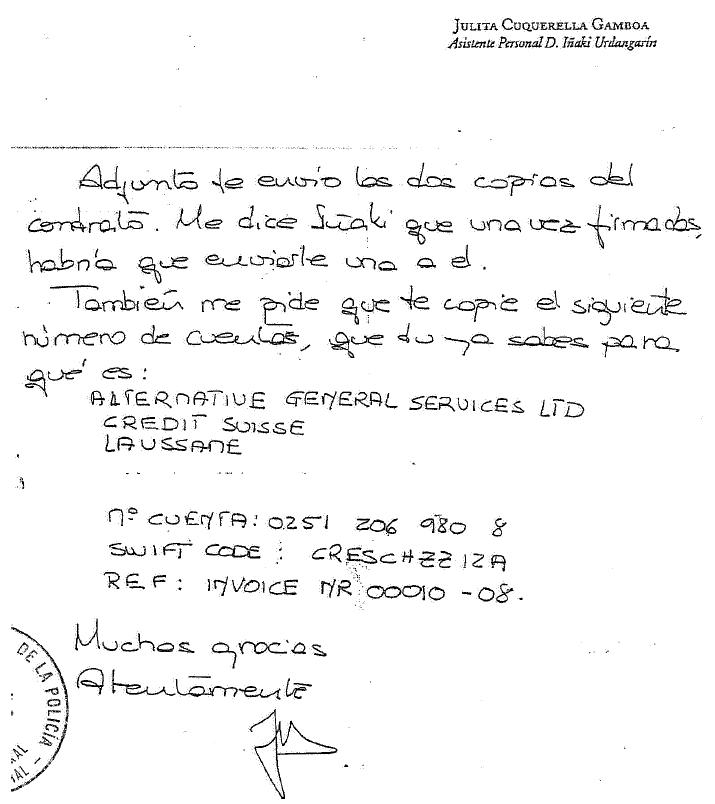 JULITA CUQUERELLA GAMBOA
Asistente Personal D. Iñaki Urdangarín
Adjunto te envio las dos copias del
contrato. Me dice Iñaki que una vez firmadas,
habría que enviarle una a el.
También me pide que te copie el siguiente
número de cuentas, que tu ya sabes para
qué es:
ALTERNATIVE GENERAL SERVICES LTD
CREDIT SUISSE
LAUSSANE
Nº CUENTA: 0251 206 980 8
SWIFT CODE : CRESCHZZ12A
REF: INVOICE NR 00010 -08.
Muchas gracias
Atentamente
DE LA POLICÍA -